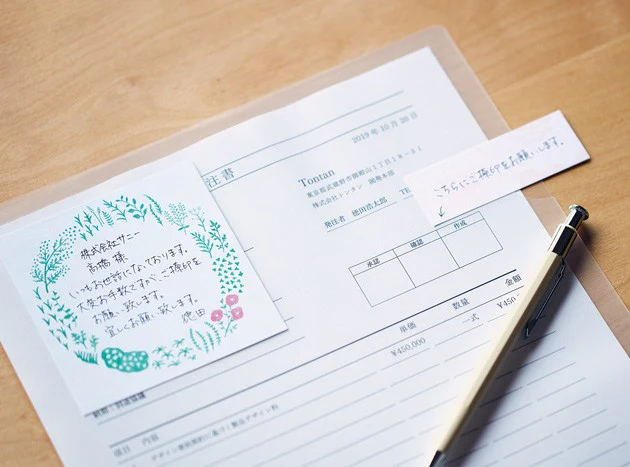 注書
2019年10月20日
Tontan
東京都武蔵野市御殿山1丁目18-21
株式会社トンタン 開発本部
発注者 徳田浩太郎
こちらにご捺印をお願いします。
承認 確認 作成
株式会社サニー
高橋様
いつもお世話になっております。
お手数ですが、ご捺印を
お願い致します。
宜しくお願い致します。
徳田
項目 内容 単価 数量 金額
¥450,000 一式 ¥450